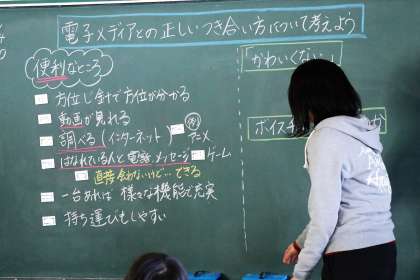 電子メディアとの正しいつき合い方について考えよう
便利なところ
方位じしんで方位が分かる
動画が見れる
調べる(インターネット)
アニメ
はなれている人と電話、メッセージ
ゲーム
直接会わないけど…できる
一台あれば様々な機能で充実
持ち運びもしやすい
「かわいくない」
ボイスチ
か